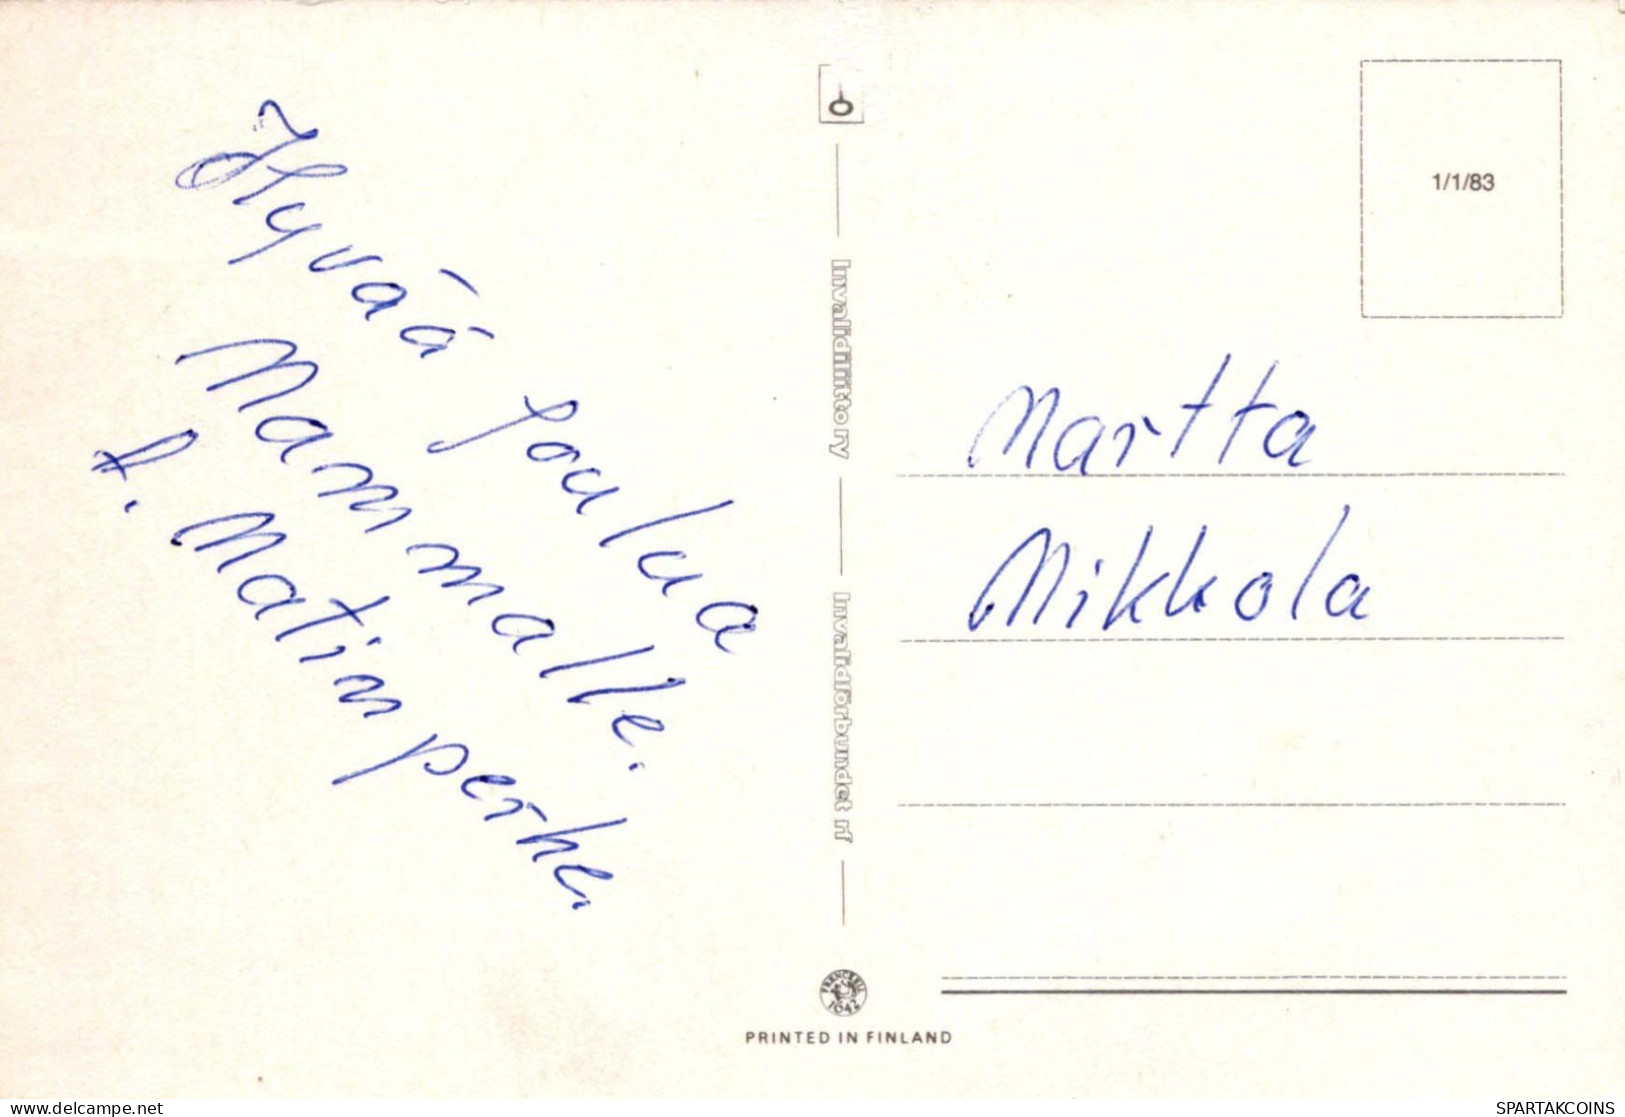 Hyvää Joulua
Mammalle.
t. Matin perhe.
Invalidiliitto ry
Invalidförbundet rf
FRENCKELL
1642
PRINTED IN FINLAND
1/1/83
Martta
Mikkola
www.delcampe.net
SPARTAKCOINS